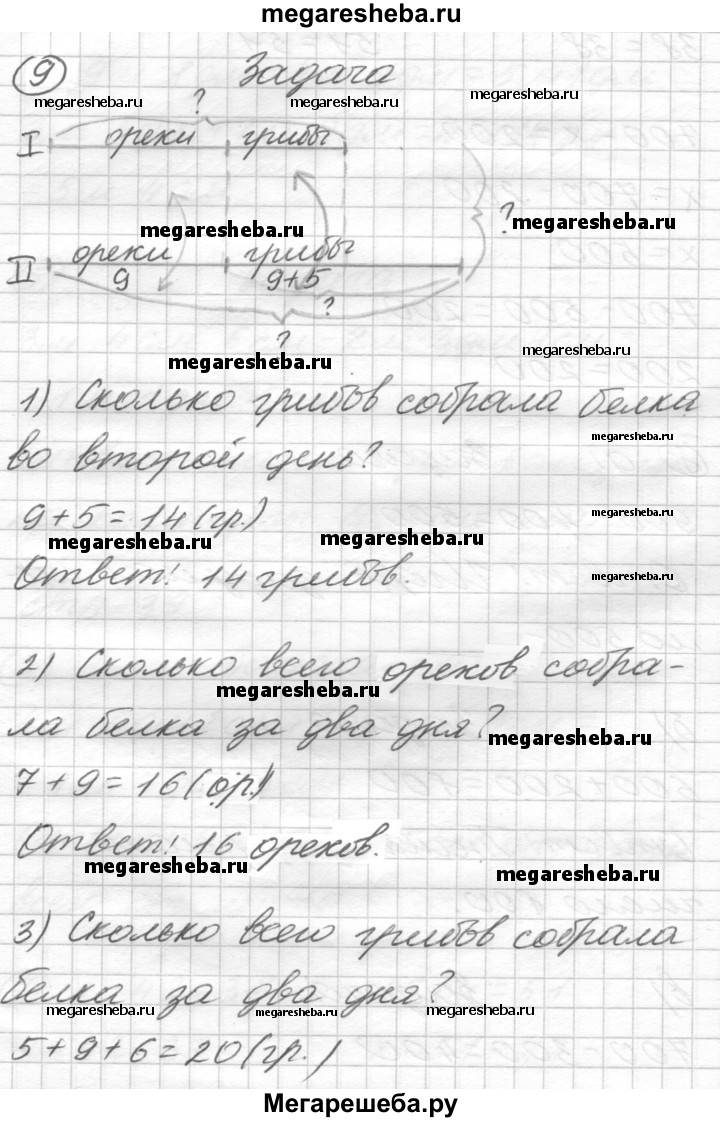 megaresheba.ru
9 Задача
megaresheba.ru megaresheba.ru megaresheba.ru
?
I орехи грибы
megaresheba.ru ? megaresheba.ru
II орехи грибы
9 9+5
?
?
megaresheba.ru megaresheba.ru
1) Сколько грибов собрала белка
megaresheba.ru
во второй день?
9+5=14(гр.) megaresheba.ru
megaresheba.ru megaresheba.ru
Ответ: 14 грибов. megaresheba.ru
2) Сколько всего орехов собра-
megaresheba.ru
ла белка за два дня? megaresheba.ru
7+9=16(ор.)
Ответ: 16 орехов.
megaresheba.ru megaresheba.ru
3) Сколько всего грибов собрала
белка за два дня?
megaresheba.ru megaresheba.ru megaresheba.ru
5+9+6=20(гр.)
Мегарешеба.ру